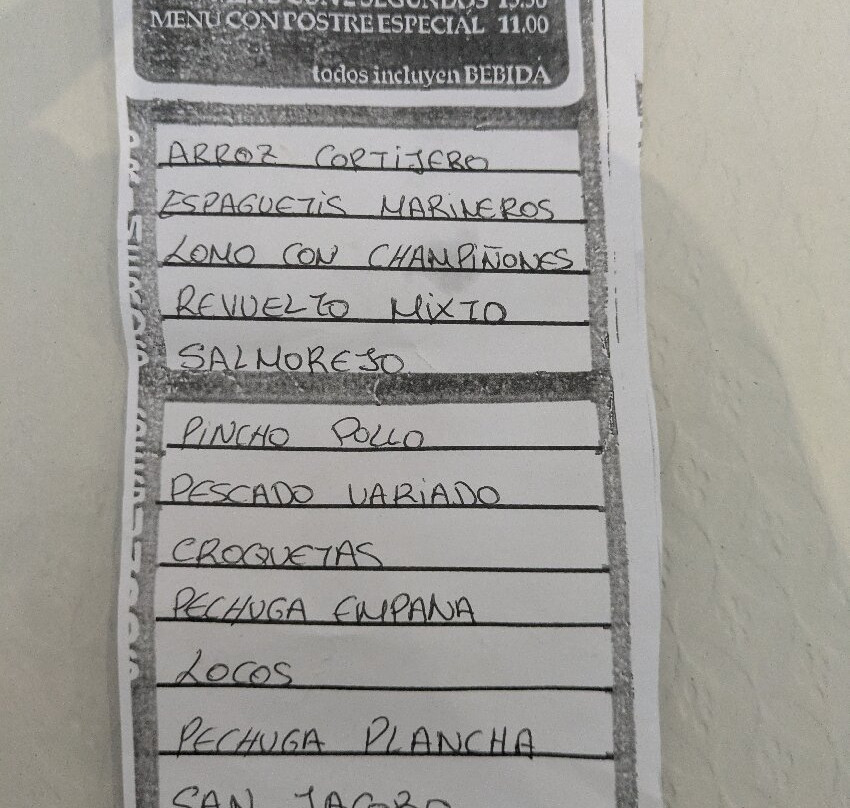 SEGUNDOS 13.50
MENU CON POSTRE ESPECIAL 11.00
todos incluyen BEBIDA
ARROZ CORTIJERO
ESPAGUETIS MARINEROS
LOMO CON CHAMPIÑONES
REVUELTO MIXTO
SALMOREJO
PINCHO POLLO
PESCADO VARIADO
CROQUETAS
PECHUGA EMPANA
LOCOS
PECHUGA PLANCHA
SAN JACOBO